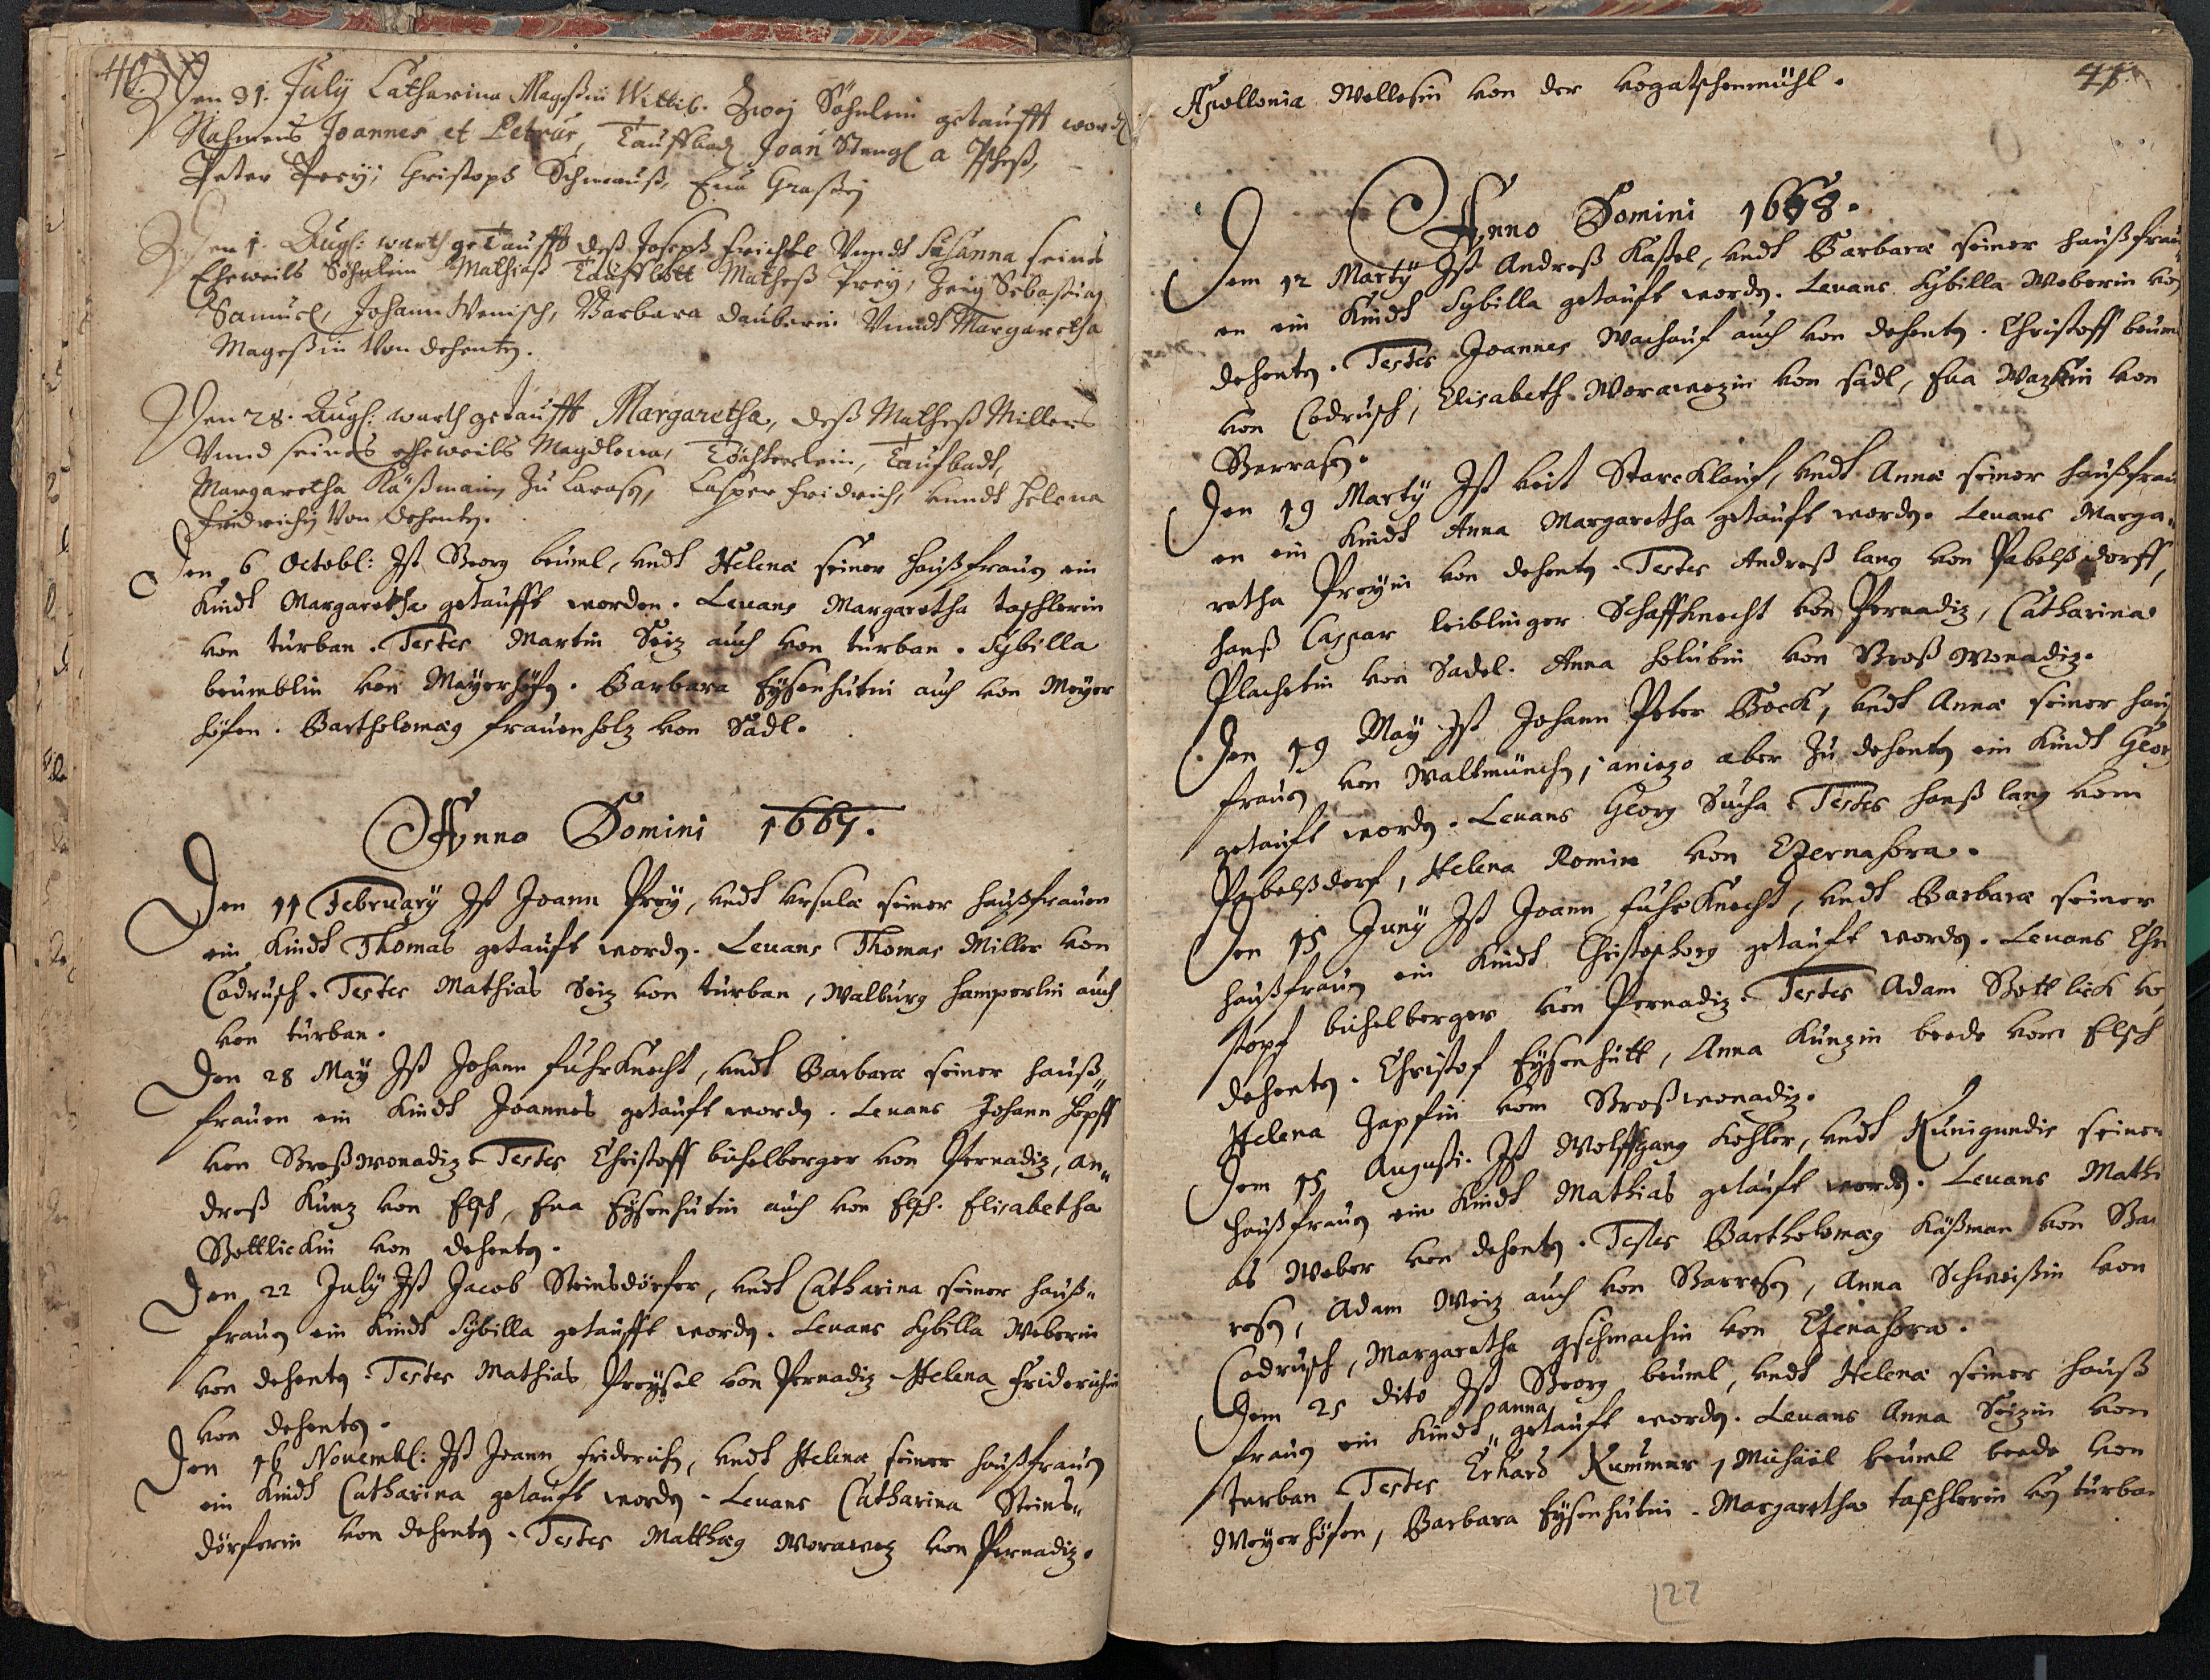 40.
Den 31. July Catharina Mageßin Wittib. Zwej Söhnlein getaufft
Nahmens Joannes et Petrus, Tauffbad Joan Stengl a
Peter Prey, Christoph Schmauß, Eua Graßin
Den 1. Augs: warth getaufft deß Joseph Vnndt Susanna seines
Eheweibs Söhnlein Mathiaß Matheß Prey, Zeüg Sebastian
Samuel, Johann Wenisch, Barbara Dauberin Vnndt Margaretha
Mageßin Von dehenten.
Den 28. Augs: warth getaufft Margaretha, deß Matheß Millers
Vnnd seines eheweibs Magdlena, Töchterlein, Taufbadt,
Margaretha Käßmanin Zu Caspar Fridrich, vnndt Helena
Fridrichin Von dehenten.
Den 6 Octobl: Ist Georg beüml, vndt Helena seiner haußfrauen ein
Kindt Margaretha getaufft worden. Leuans Margaretha taschlerin
von turban. Testes Martin Seiz auch von turban. Sybilla
beümblin von Mayerhöfen. Barbara Eysenhütin auch von Meyer
höfen. Bartholomæy frauenholz von Sadl.
Anno Domini 1667.
Den 11 February Ist Joann Prey, vndt Vrsula seiner haußfrauen
ein Kindt Thomas getauft worden. Leuans Thomas Miller von
Codrusch. Testes Mathias Seiz von turban, Walburg hamperlin auch
von turban.
Den 28 May Ist Johann fuhrKnecht, vndt Barbara seiner hauß„
frauen ein Kindt Joannes getauft worden. Leuans Johann hopff
von Großwonadiz Testes Christoff büchelberger von Pernadiz, An„
dreß Kunz von Elsch, Eua Eysenhütin auch von Elsch. Elisabetha
Gottlickin von dehenten.
Den 22 July Ist Jacob Steinsdörfer, vndt Catharina seiner hauß„
frauen ein Kindt Sybilla getaufft worden. Leuans Sybilla Weberin
von dehenten. Testes Mathias Preysel von Pernadiz Helena Friderichin
von dehenten.
Den 16 Nouembl: Ist Joann Friderich, vndt Helena seiner haußfrauen
ein Kindt Catharina getauft worden. Leuans Catharina Steins„
dörferin von dehenten. Testes Matthæy Worawez von Pernadiz.
41
Apollonia Wellesin von der Vogatschenmühl.
Anno Domini 1668.
Dem 12 Marty Ist Andreß Kastel, vndt Barbara seiner haußfrau„
en ein Kindt Sybilla getauft worden. Leuans Sybilla Weberin von
dehenten. Testes Joannes Wachauf auch von dehenten. Christoff beüml
von Codrusch, Elisabeth Worawezin von Sadl, Eua Wazkin von

Den 19 Marty Ist Veit Starcklauf, vndt Anna seiner haußfrau
en ein Kindt Anna Margaretha getauft worden. Leuans Marga„
retha Preyin von dehenten. Testes Andreß lang von Pabelßdorff,
hanß Caspar leiblinger Schaffknecht von Pernadiz, Catharina
Plachetin von Sadel. Anna holubin von Großwonadiz.
Den 19 May Ist Johann Peter Bock, vndt Anna seiner hauß
frauen von Waltmünchen, aniezo aber Zu dehenten ein Kindt Georg
getauft worden. Leuans Georg Sucha Testes hanß lang vom
Pabelßdorf, Helena Romin von Czernahora.
Den 15 Juny Ist Joann fuhrKnecht, vndt Barbara seiner
haußfrauen ein Kindt Christophorg getauft worden. Leuans Chri
stoph büchelberger von Pernadiz. Testes Adam Gottlick von
dehenten. Christof Eysenhütt, Anna Kunzin beede vom Elsch
Helena Zapfin vom Großwonadiz.
Dem 15 Augusti. Ist Wolffgang Kohler, vndt Kunigundis seiner
haußfrauen ein Kindt Mathias getauft worden. Leuans Mathi
as Weber von dehenten. Testes Bartholomæy Käßman von Gar
resen, Adam Weiz auch von Garresen, Anna Schweißin von
Codrusch, Margaretha gschmachin von Czenahora.
Dem 25 dito Ist Georg beüml, vndt Helena seiner hauß
frauen ein Kindt anna getauft worden. Leuans Anna Seizin von
turban Testes Erhard Kummer, Michäel beüml beede von
Meyerhöfen, Barbara Eysenhütin. Margaretha taschlerin von turban
122